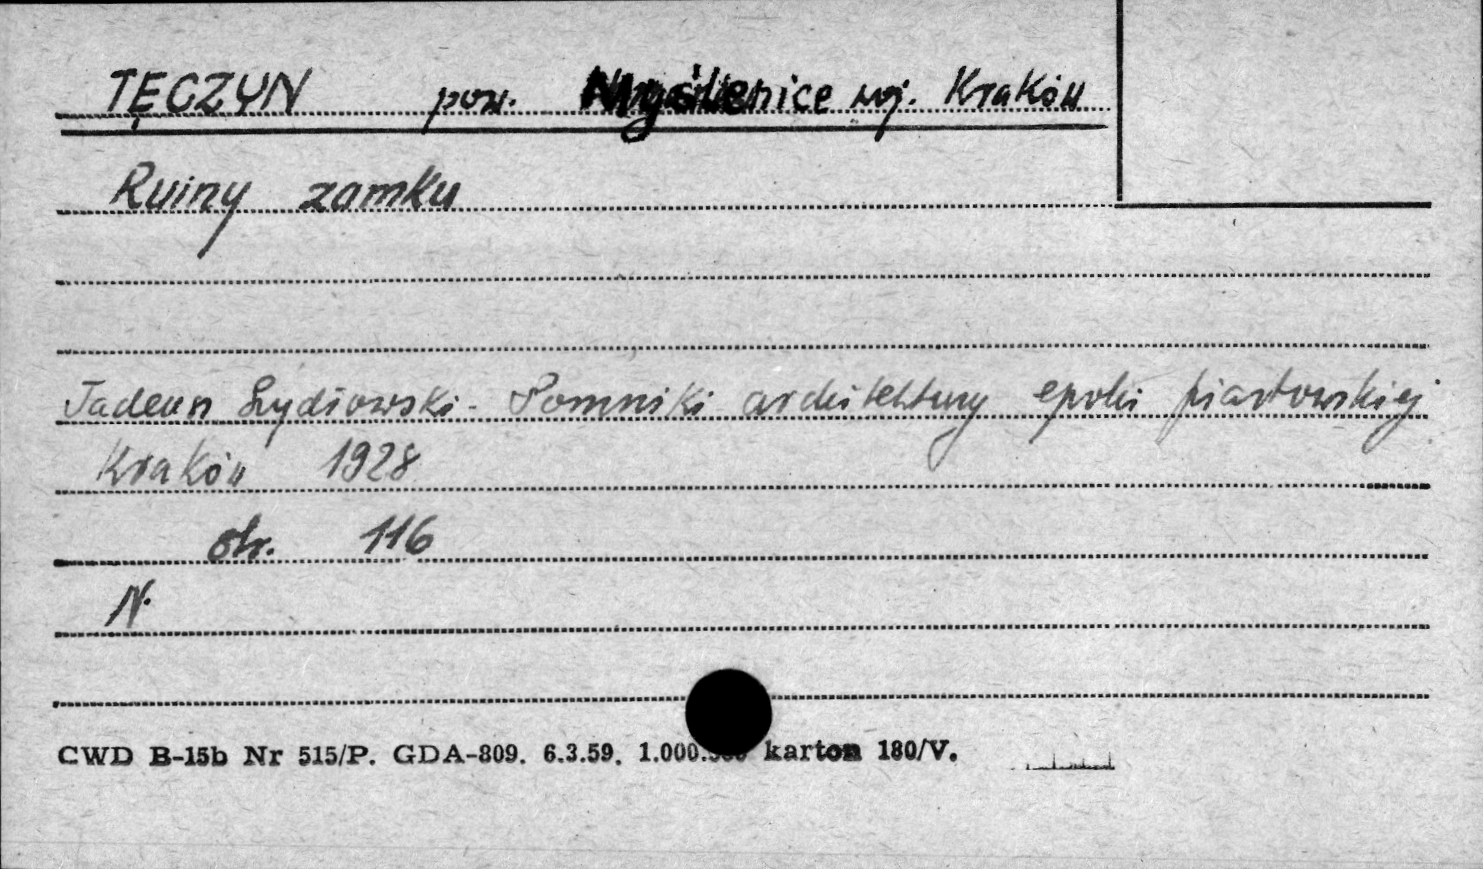 TĘCZYN pow. Myślenice woj. Kraków
Ruiny zamku
Tadeusz Szydłowski - Pomniki architektury epoki piastowskiej
Kraków 1928
str. 116
N.
CWD B-15b Nr 515/P. GDA-809. 6.3.59. karton 180/V.